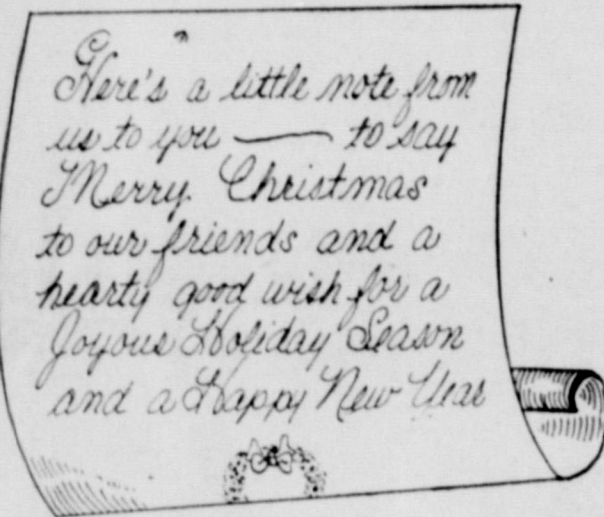 Here's a little note from
us to you — to say
Merry Christmas
to our friends and a
hearty good wish for a
Joyous Holiday Season
and a Happy New Year